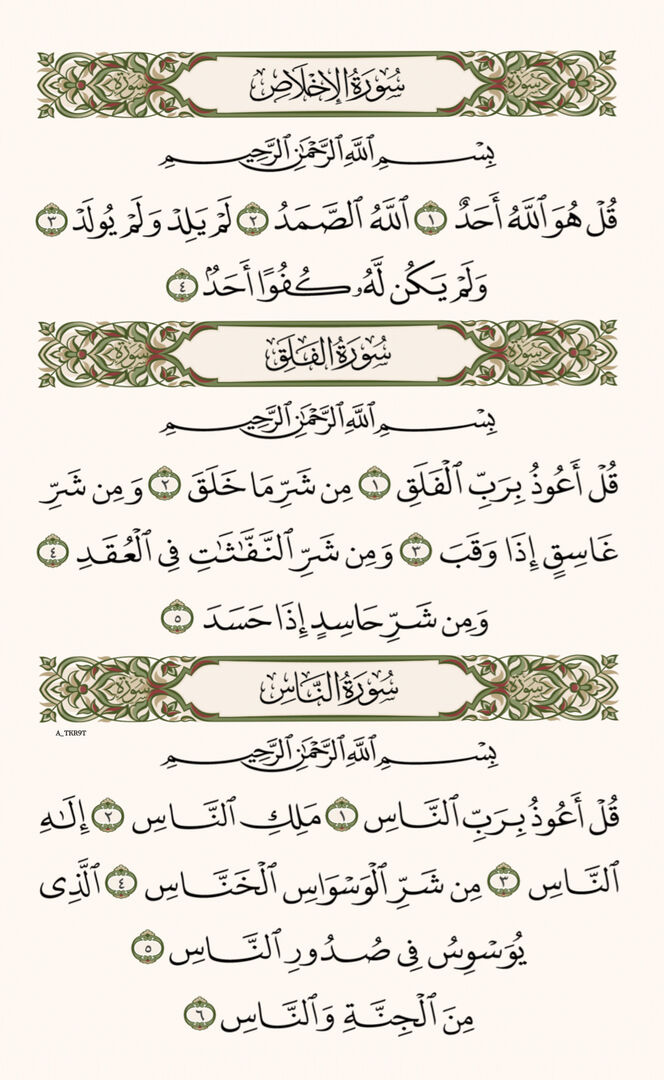 سُورَةُ الإِخْلَاصِ
بِسْمِ ٱللَّهِ ٱلرَّحْمَٰنِ ٱلرَّحِيمِ
قُلْ هُوَ ٱللَّهُ أَحَدٌ ١ ٱللَّهُ ٱلصَّمَدُ ٢ لَمْ يَلِدْ وَلَمْ يُولَدْ ٣
وَلَمْ يَكُن لَّهُۥ كُفُوًا أَحَدٌۢ ٤
سُورَةُ الفَلَقِ
بِسْمِ ٱللَّهِ ٱلرَّحْمَٰنِ ٱلرَّحِيمِ
قُلْ أَعُوذُ بِرَبِّ ٱلْفَلَقِ ١ مِن شَرِّ مَا خَلَقَ ٢ وَمِن شَرِّ
غَاسِقٍ إِذَا وَقَبَ ٣ وَمِن شَرِّ ٱلنَّفَّٰثَٰتِ فِى ٱلْعُقَدِ ٤
وَمِن شَرِّ حَاسِدٍ إِذَا حَسَدَ ٥
سُورَةُ النَّاسِ
A_TKR9T
بِسْمِ ٱللَّهِ ٱلرَّحْمَٰنِ ٱلرَّحِيمِ
قُلْ أَعُوذُ بِرَبِّ ٱلنَّاسِ ١ مَلِكِ ٱلنَّاسِ ٢ إِلَٰهِ
ٱلنَّاسِ ٣ مِن شَرِّ ٱلْوَسْوَاسِ ٱلْخَنَّاسِ ٤ ٱلَّذِى
يُوَسْوِسُ فِى صُدُورِ ٱلنَّاسِ ٥
مِنَ ٱلْجِنَّةِ وَٱلنَّاسِ ٦